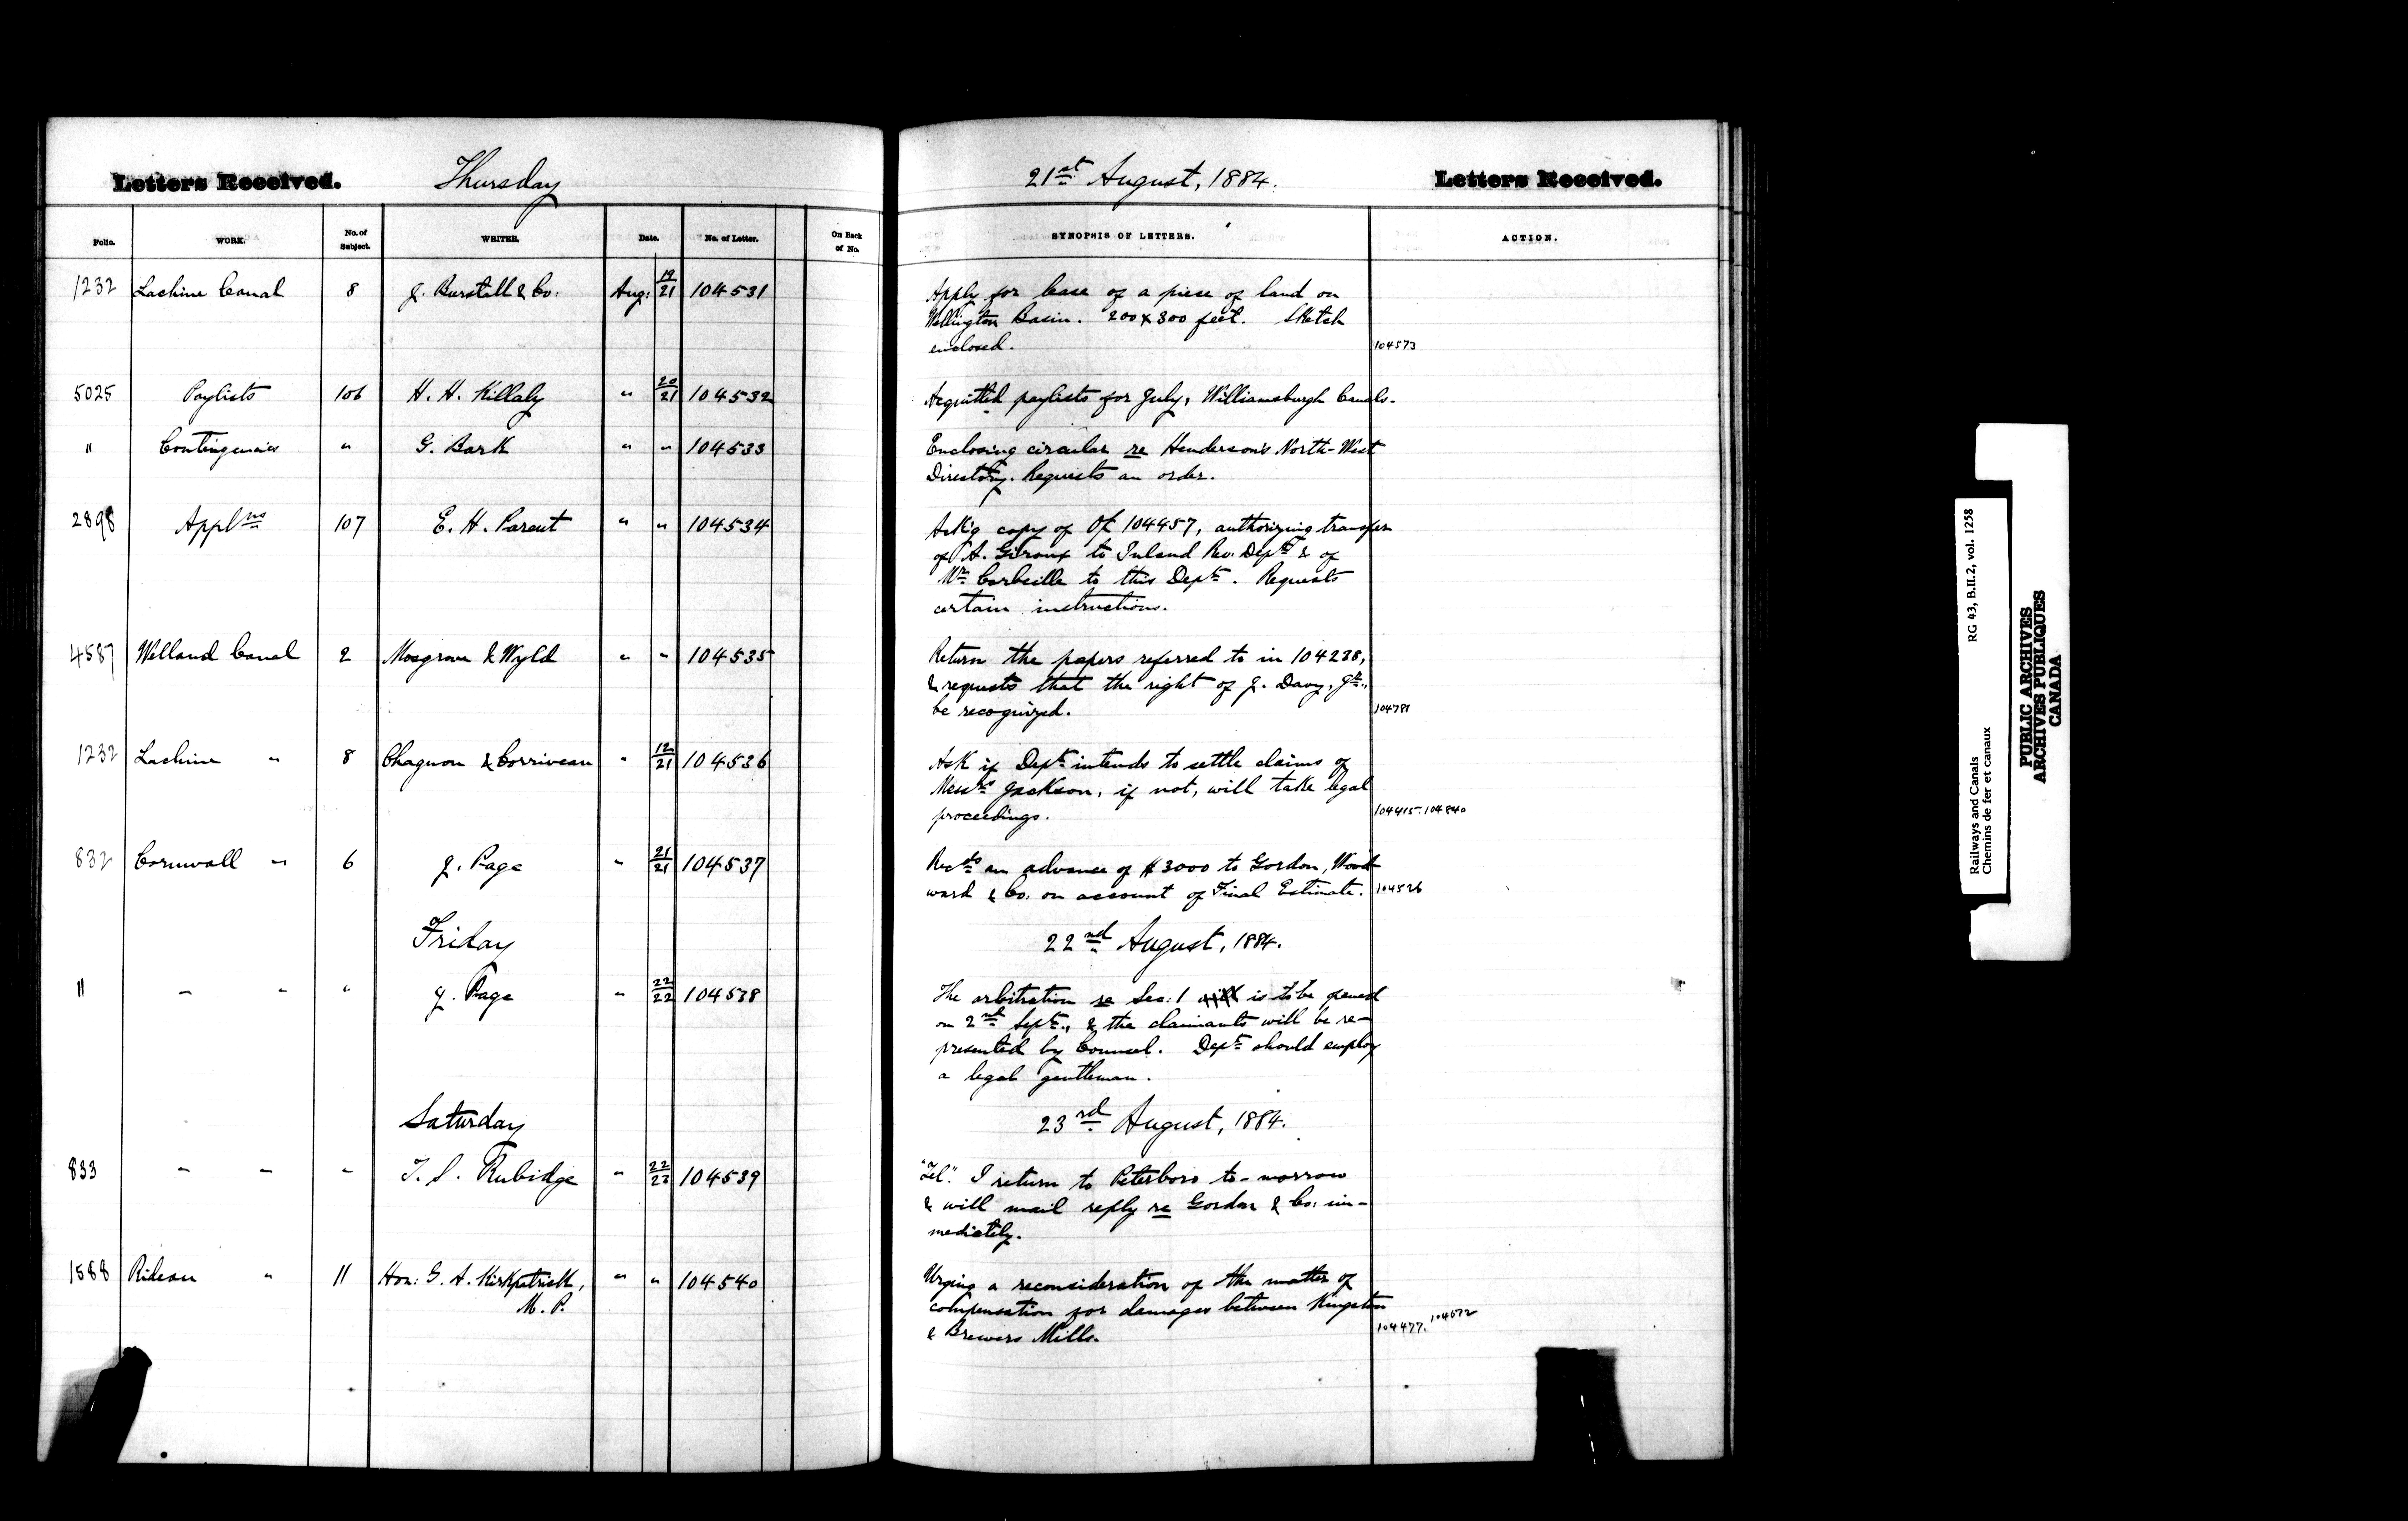 Letters Received. Thursday 21st August, 1884. Letters Received.
Folio. WORK. No. of Subject. WRITER. Date. No. of Letter. On Back of No. SYNOPSIS OF LETTERS. ACTION.
1232 Lachine Canal 8 J. Burstall & Co. Aug: 19/21 104531 Apply for lease of a piece of land on
Wellington Basin. 200 x 300 feet. Sketch
enclosed. 104573
5025 Paylists 106 H. H. Killaly " 20/21 104532 Acquitted paylists for July, Williamsburgh Canals.
" Contingencies " G. Bark " " 104533 Enclosing circular re Henderson's North-West
Directory. Requests an order.
2898 Applns 107 E. H. Parent " " 104534 Ask'g copy of Of 104457, authorizing transfer
of A. Giroux to Inland Rev. Dept & of
Mr. Corbeille to this Dept. Requests
certain instructions.
4587 Welland Canal 2 Mosgrove & Wyld " " 104535 Return the papers referred to in 104238,
& requests that the right of J. Davy, Jr.,
be recognized. 104781
1232 Lachine " 8 Chagnon & Corriveau " 12/21 104536 Ask if Dept intends to settle claims of
Messrs Jackson, if not, will take legal
proceedings. 104415. 104840
832 Cornwall " 6 J. Page " 21/21 104537 Recds an advance of $3000 to Gordon, Wood-
ward & Co. on account of Final Estimate. 104526
Friday 22nd August, 1884.
" " " " J. Page " 22/22 104538 The arbitration re Sec: 1 is to be opened
on 2nd Sept., & the claimants will be re-
presented by Counsel. Dept should employ
a legal gentleman.
Saturday 23rd August, 1884.
833 " " " T. S. Rubidge " 22/23 104539 "Tel". I return to Peterboro to-morrow
& will mail reply re Gordon & Co: im-
mediately.
1588 Rideau " 11 Hon: G. A. Kirkpatrick, M. P. " " 104540 Urging a reconsideration of the matter of
compensation for damages between Kingston
& Brewers Mills. 104477. 104572
RG 43, B.II.2, vol. 1258
Railways and Canals
Chemins de fer et canaux
PUBLIC ARCHIVES
ARCHIVES PUBLIQUES
CANADA